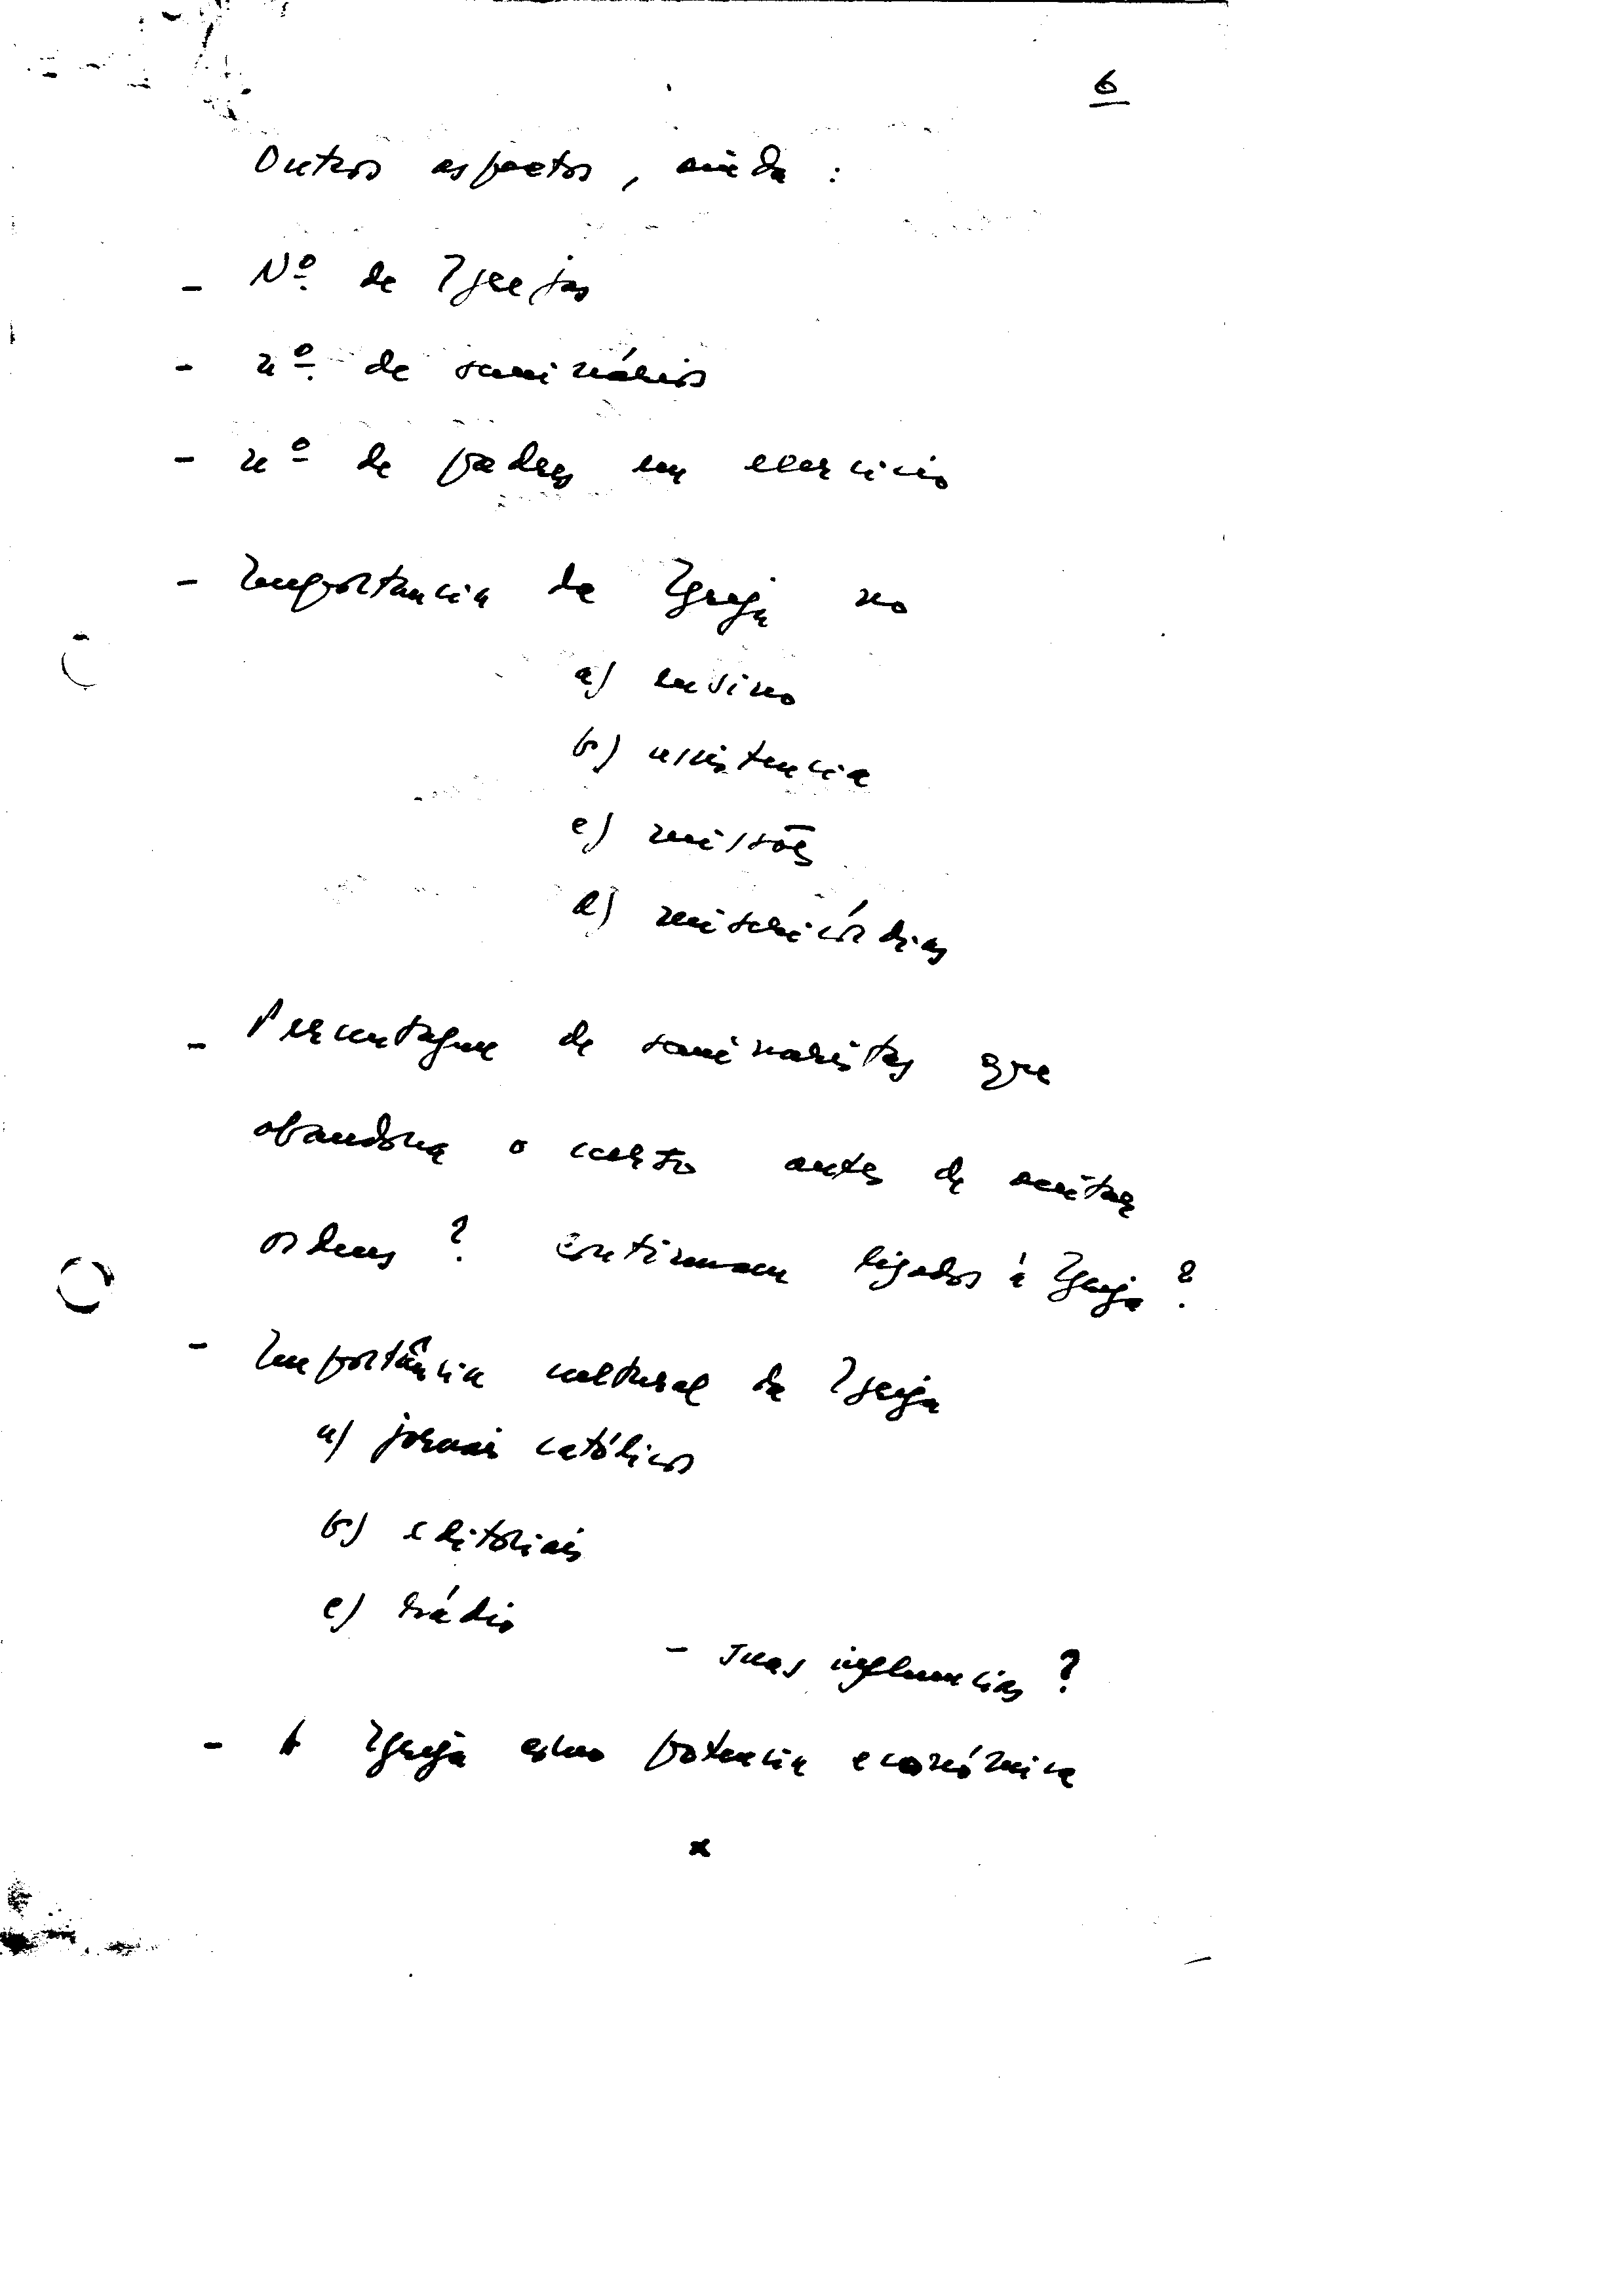 6
Outros aspectos, ainda :
- Nº. de Igrejas
- nº. de seminários
- nº de padres em exercicio
- Importancia da Igreja no
a) ensino
b) assistencia
c) missões
d) misericórdias
- Percentagem de seminaristas que
abandona o curso antes de aceitar
ordens ? Continuam ligados à Igreja ?
- Importância cultural da Igreja
a) jornais católicos
b) editoriais
c) rádio
- suas influencias ?
- A Igreja como potencia económica
x